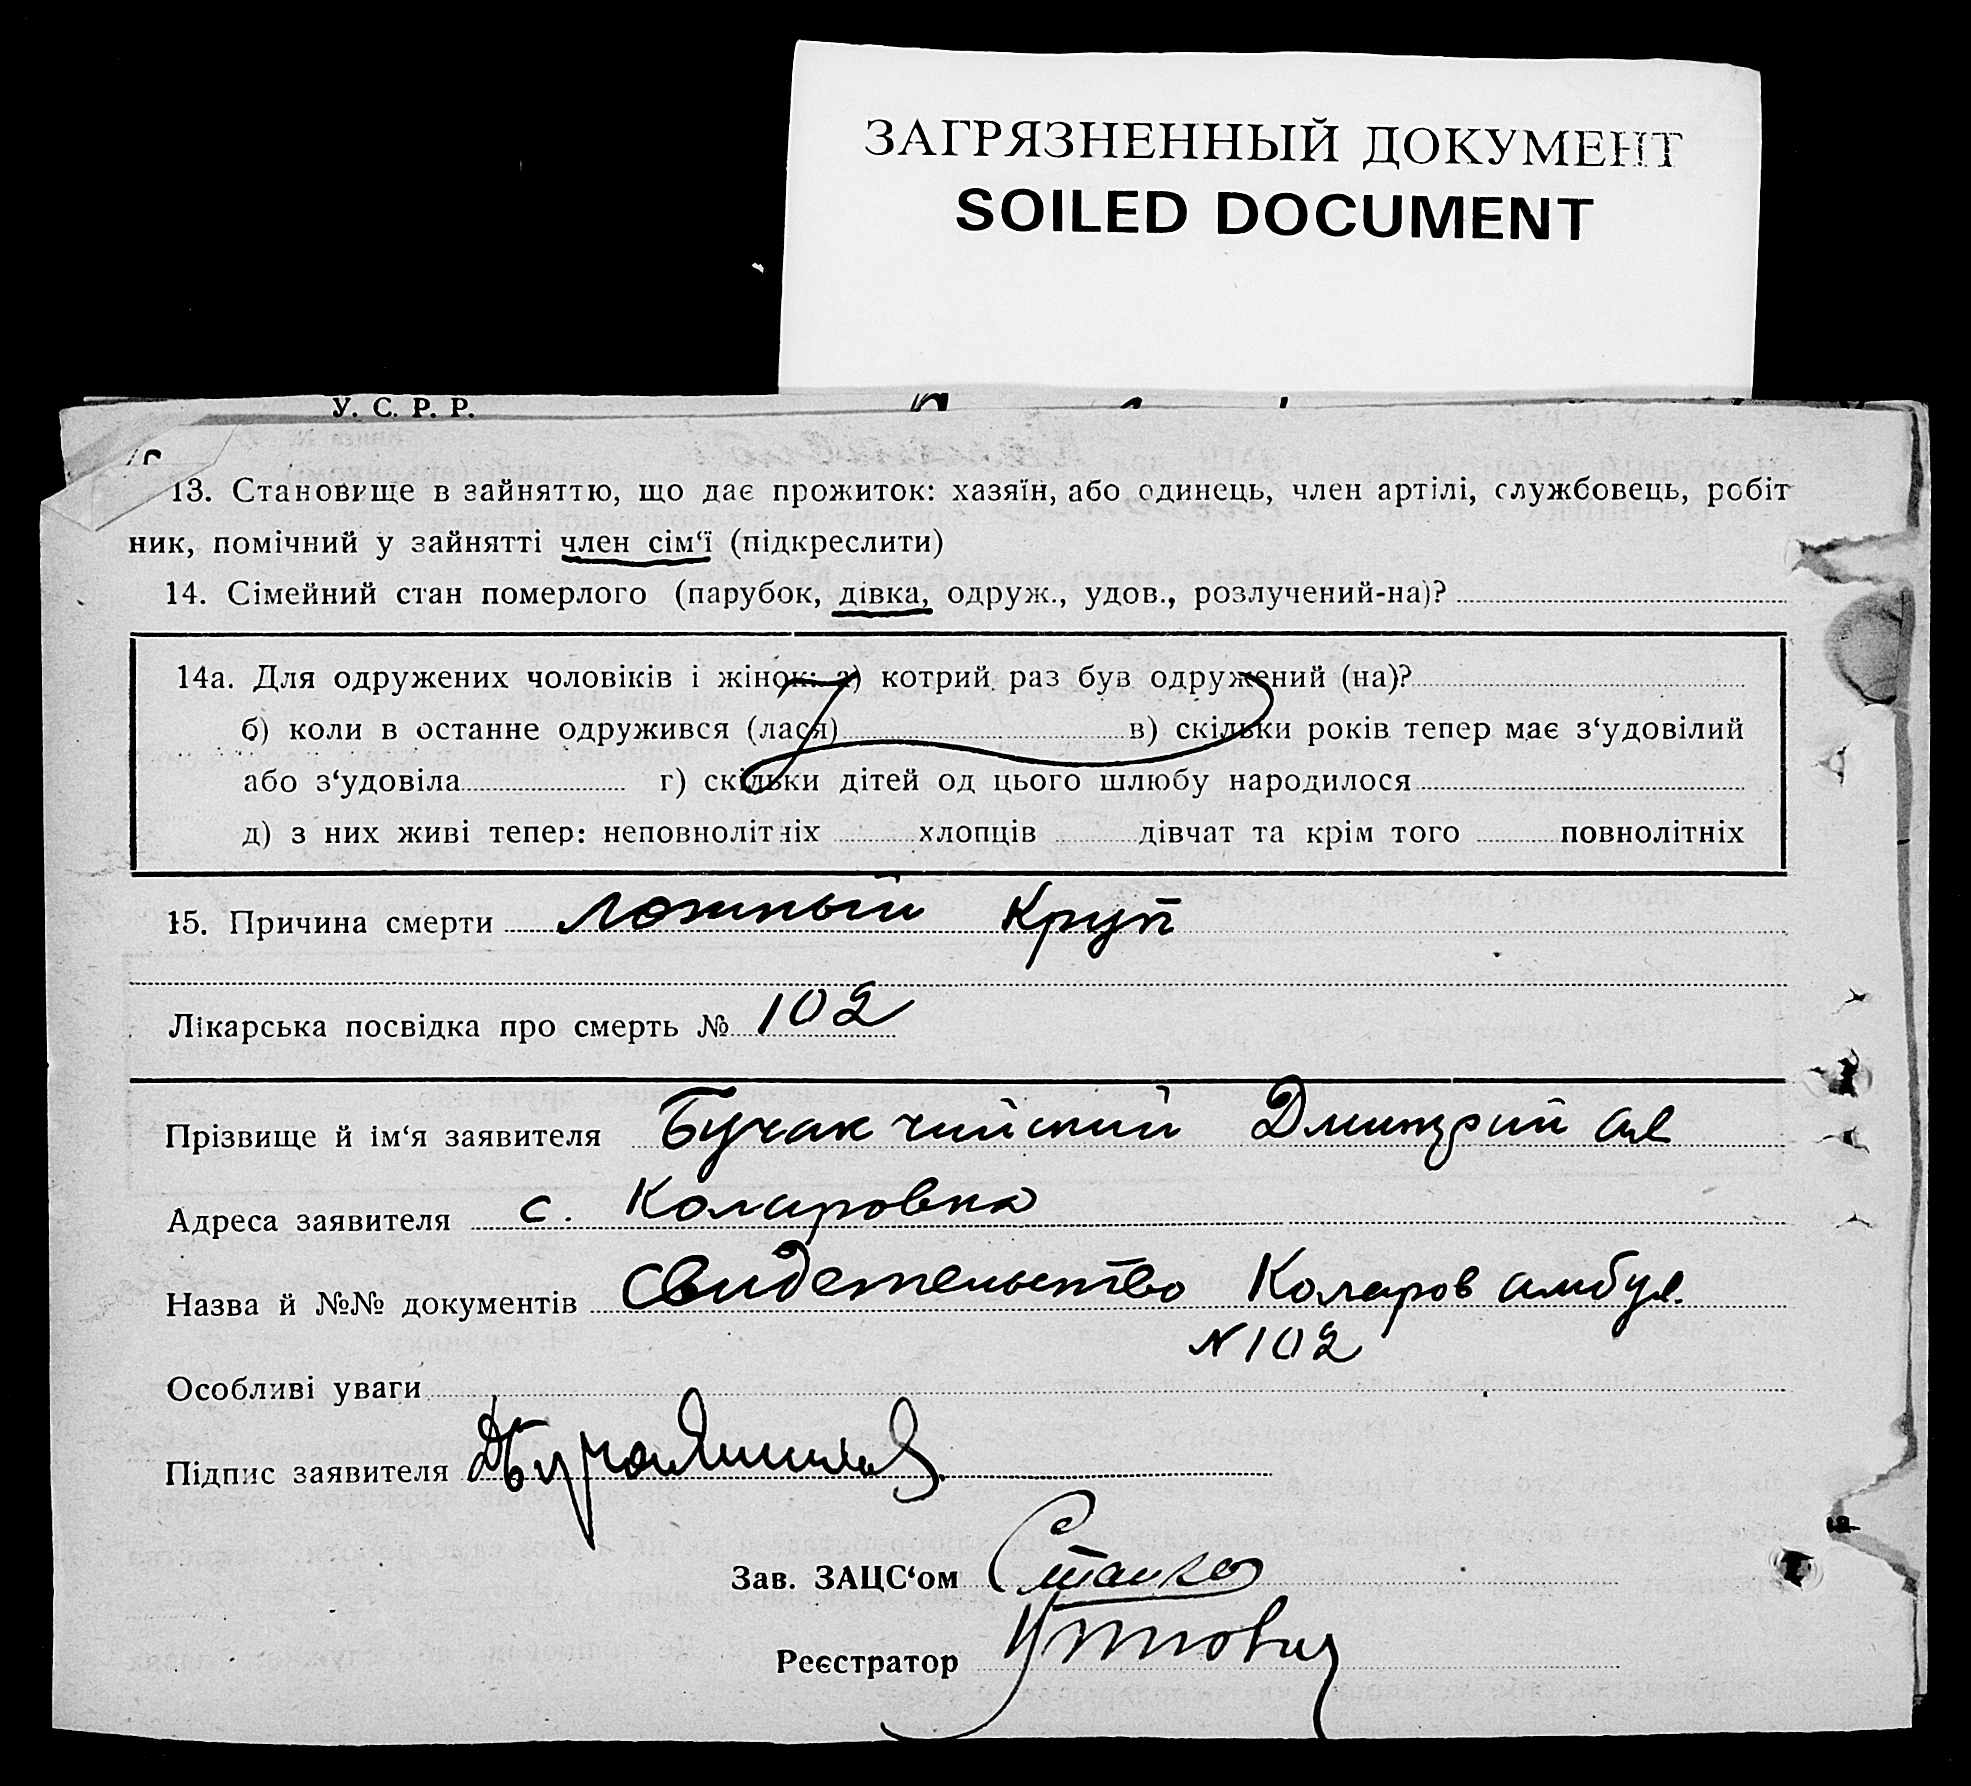 ЗАГРЯЗНЕННЫЙ ДОКУМЕНТ
SOILED DOCUMENT
У. С. Р. Р.
13. Становище в зайняттю, що дає прожиток: хазяїн, або одинець, член артілі, службовець, робіт
ник, помічний у зайнятті член сім‘ї (підкреслити)
14. Сімейний стан померлого (парубок, дівка, одруж., удов., розлучений-на)?
14а. Для одружених чоловіків і жінок: а) котрий раз був одружений (на)?
б) коли в останнє одружився (лася) в) скільки років тепер має з‘удовілий
або з‘удовіла г) скільки дітей од цього шлюбу народилося
д) з них живі тепер: неповнолітніх хлопців дівчат та крім того повнолітніх
15. Причина смерти Ложный Круп
Лікарська посвідка про смерть № 102
Прізвище й ім‘я заявителя Дмитрий
Адреса заявителя с. Коларовка
Назва й №№ документів Свидетельство Коларов амбул.
N 102
Особливі уваги
Підпис заявителя
Зав. ЗАЦС‘ом
Реєстратор